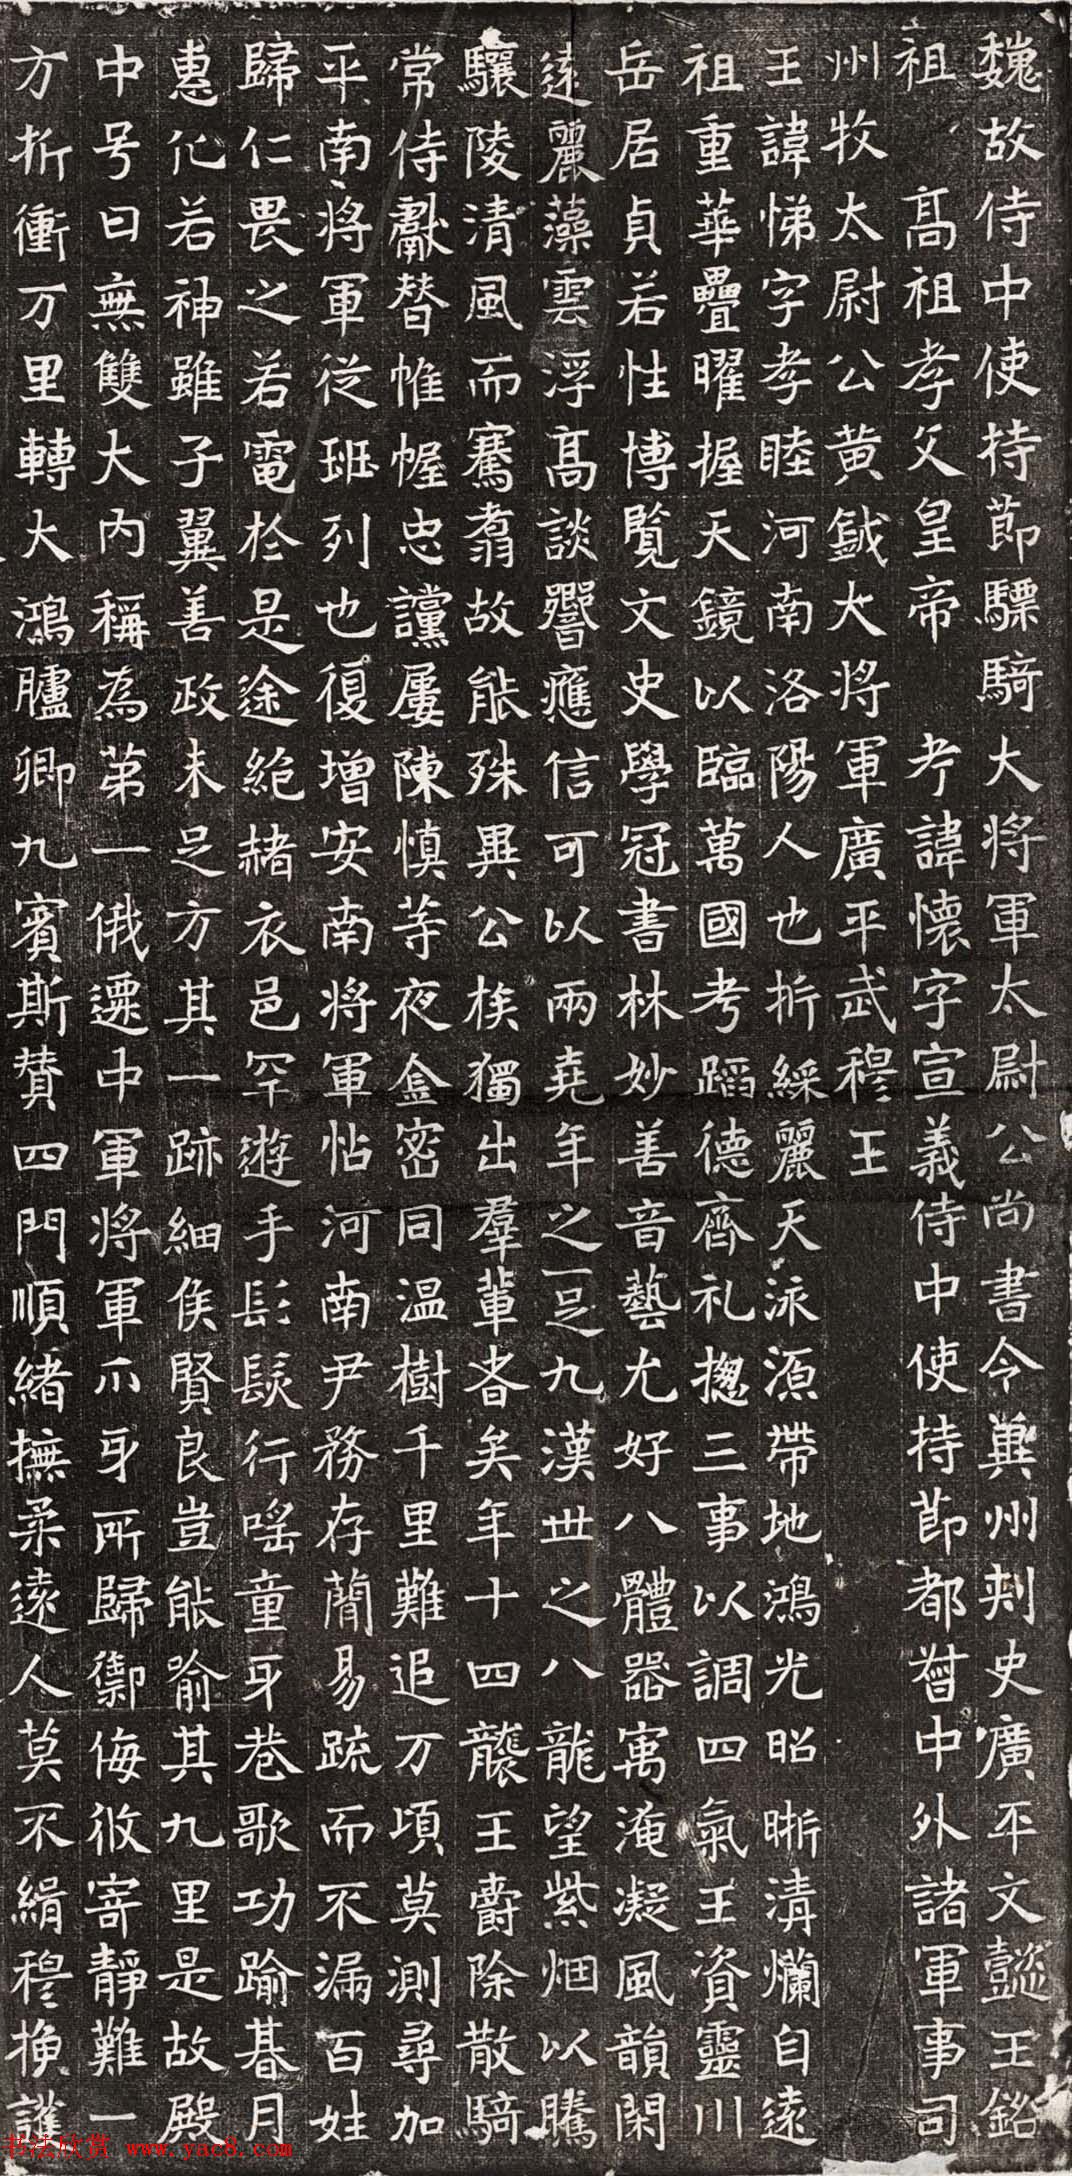 魏故侍中使持節驃騎大將軍太尉公尚書令冀州刾史廣平文懿王銘
祖 髙祖孝父皇帝 考諱懷字宣義侍中使持節都督中外諸軍事司
州牧太尉公黄鉞大將軍廣平武穆王
王諱悌字孝睦河南洛陽人也折綵麗天泳源帶地鴻光昭晣清爛自遠
祖重華疊曜握天鏡以臨萬國考蹈德齊礼揔三事以調四氣王資靈川
岳居貞若性博覧文史學冠書林妙善音藝尤好八體器寓淹凝風韻閑
遠麗藻雲浮髙談響應信可以兩堯年之一足九漢世之八龍望紫烟以騰
驤陵清風而騫翥故能殊異公族獨出羣輩者矣年十四襲王爵除散騎
常侍獻替帷幄忠讜屢陳慎等夜金密同温樹千里難追万頃莫測尋加
平南將軍從班列也復增安南將軍怗河南尹務存簡易疏而不漏百姓
歸仁畏之若電於是途絶赭衣邑罕遊手髟髮行謡童牙巷歌功踰朞月
惠化若神雖子翼善政未足方其一跡細侯賢良豈能喻其九里是故殿
中号曰無雙大内稱為第一俄遷中軍將軍爪牙所歸禦侮攸寄靜難一
方折衝万里轉大鴻臚卿九賓斯賛四門順緒撫柔遠人莫不緝穆挽護
书法欣赏 www.yac8.com